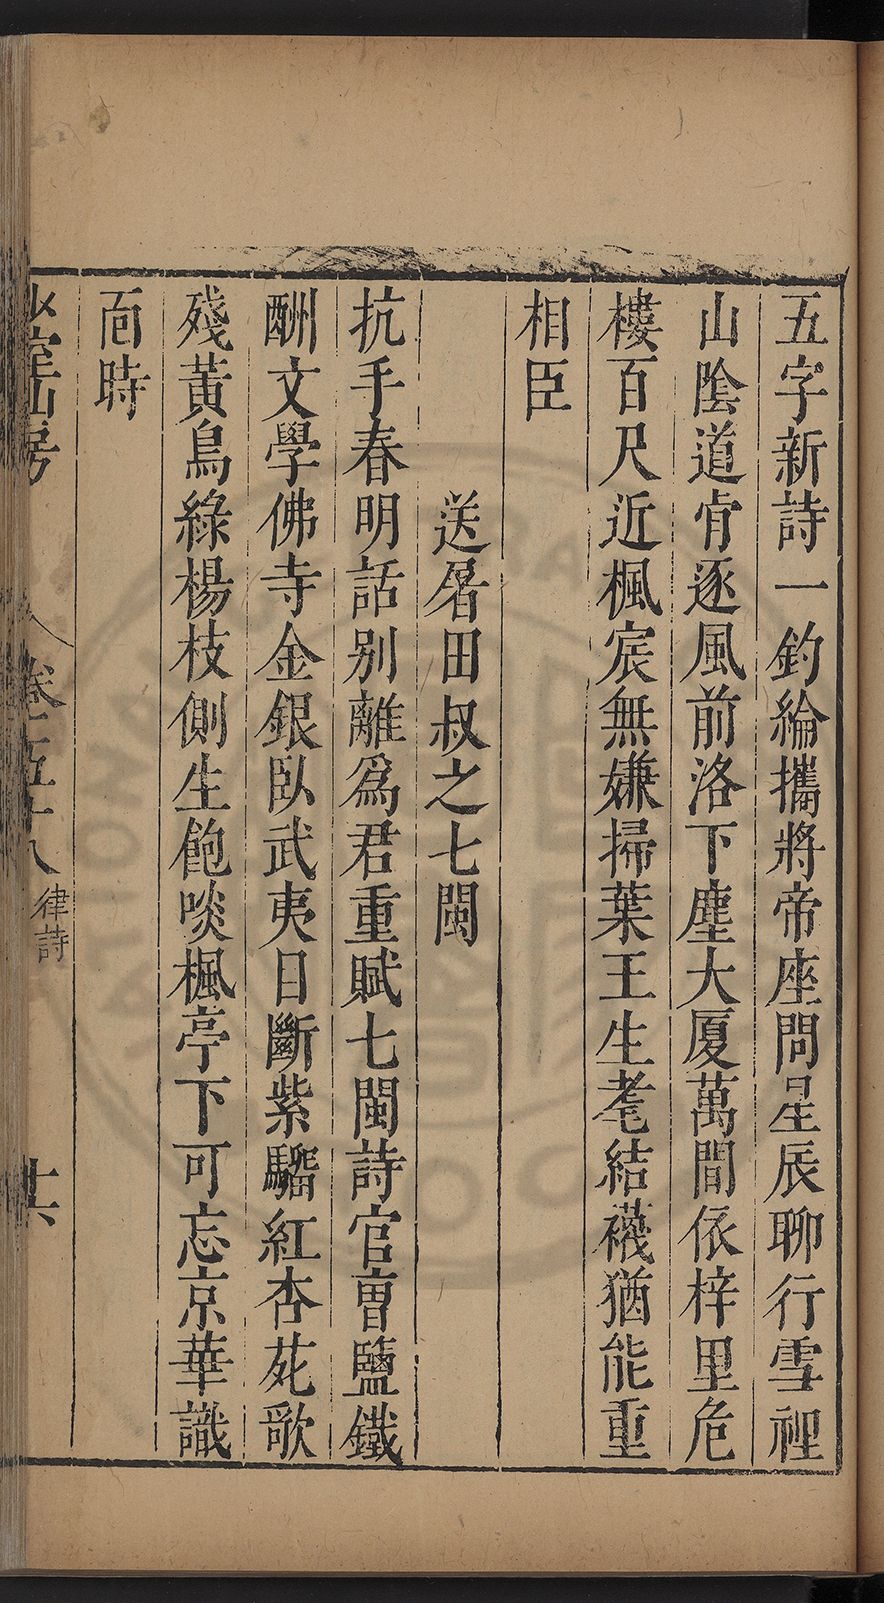 五字新詩一釣綸攜將帝座問星辰聊行雪裡
山陰道肯逐風前洛下塵大厦萬間依梓里危
樓百尺近楓宸無嫌掃葉王生耄結襪猶能重
相臣
送屠田叔之七閩
抗手春明話别離爲君重賦七閩詩官曹鹽鐵
酬文學佛寺金銀臥武夷日斷紫騮紅杏苑歌
殘黃鳥綠楊枝側生飽啖楓亭下可忘京華識
面時
少室山房
卷五十八
律詩
十六